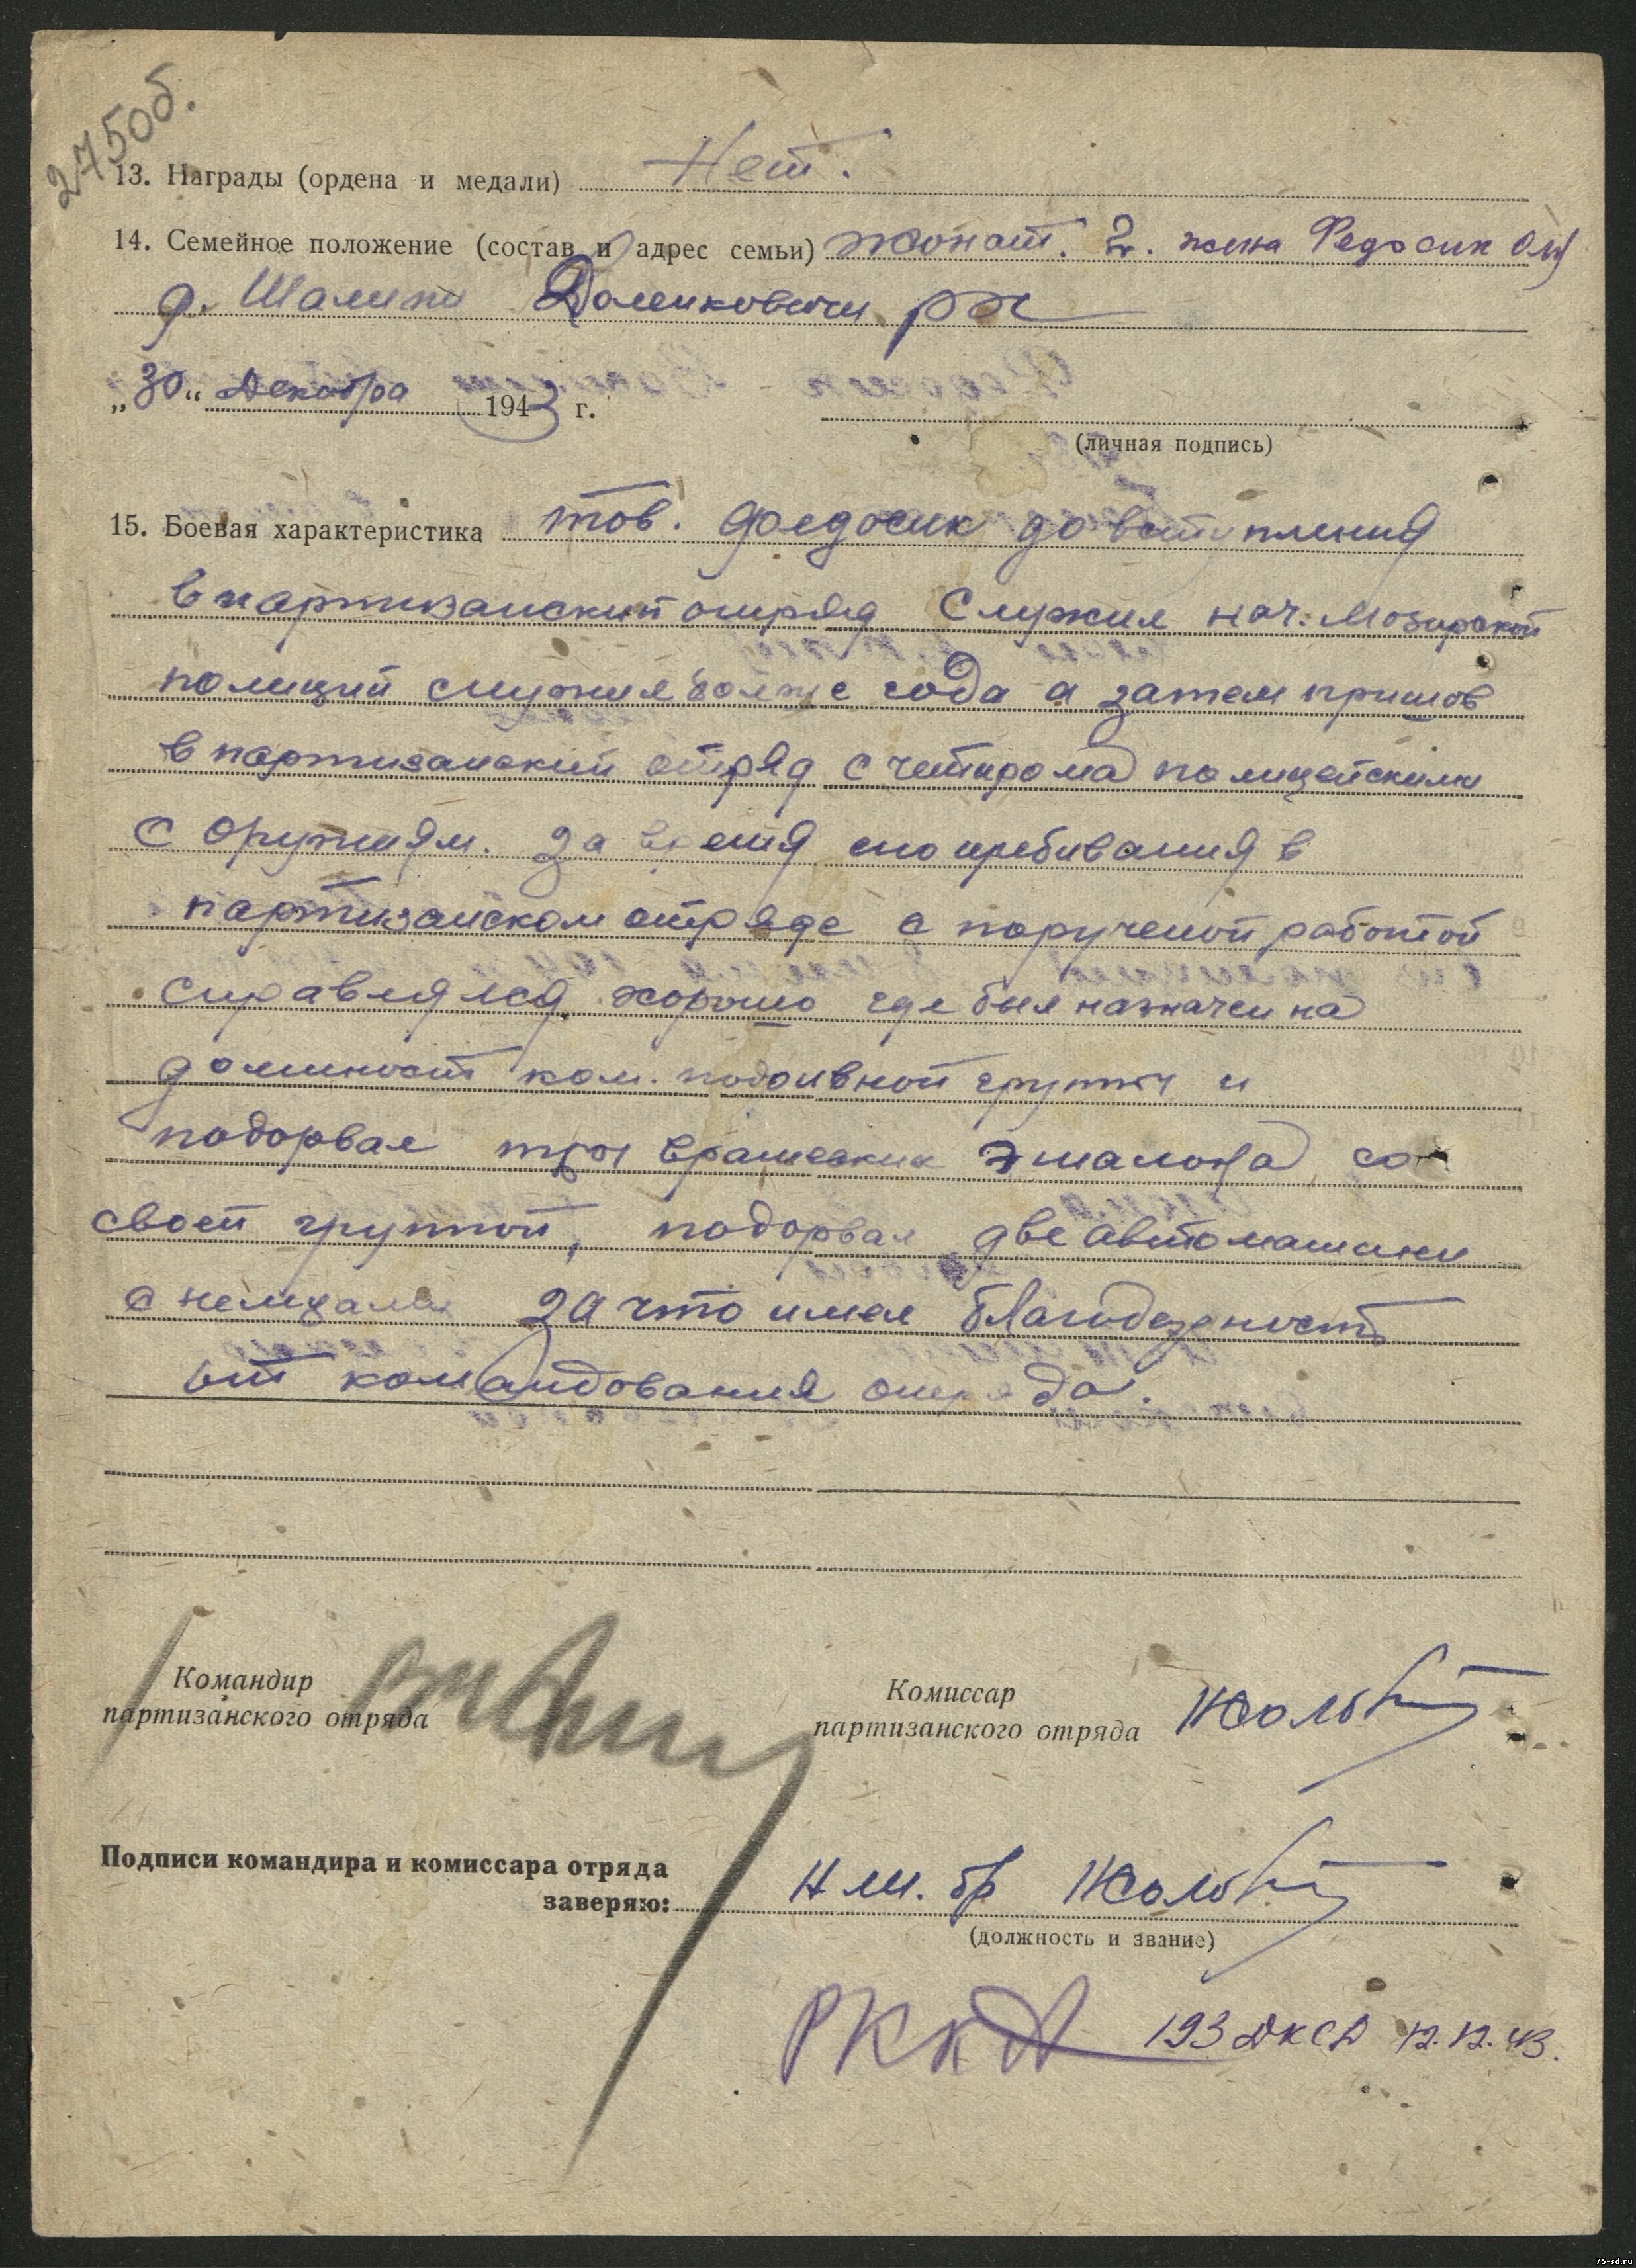 27506.
13. Награды (ордена и медали) Нет.
14. Семейное положение (состав и адрес семьи) жонат. 2. жена Федосик
д. Домановичи рн
„30“ Декабра 1943 г.
(личная подпись)
15. Боевая характеристика тов. Федосик до вступления
в партизанский отряд служил нач. Мозырской
полиций служил больше года а затем пришов
в партизанский отряд с четырома полицейскими
с оружиям. За время его пребивания в
партизанском отряде с поручений работой
справлялся хорошо где был назначен на
должност ком. подривной групы и
подорвал три вражеских эшалона со
своей групой, подорвал две автомашини
с немцами за что имел благодарность
от командования отряда.
Командир
партизанского отряда
Комиссар
партизанского отряда
Подписи командира и комиссара отряда
заверяю: Н ш. бр
(должность и звание)
РККА 193 ДКСД 12.12.43.
75-sd.ru